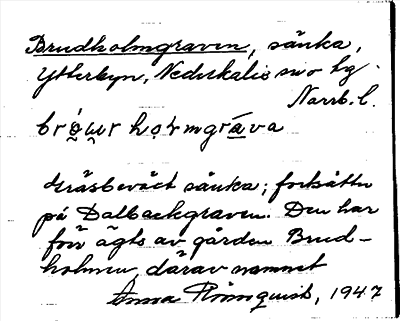 Brudholmgraven, sänka,
Ytterbyn, Nederkalix sn o hg
Norrb. l.
holmgráva
Gräsbeväxt sänka; fortsätter
på Dalbackgraven. Den har
förr ägts av gården Brud-
holmen, därav namnet
Anna Rönnquist, 1947